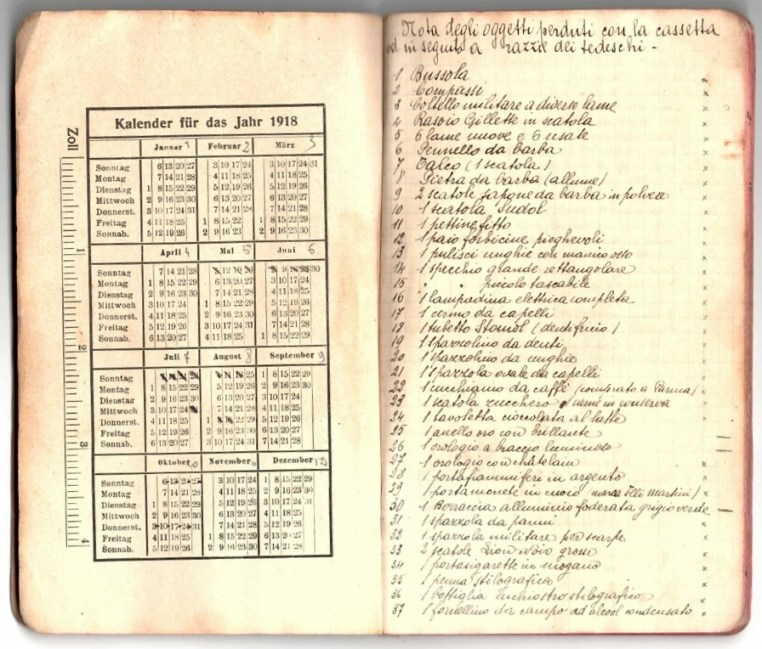 Zoll
1
2
3
4
Kalender für das Jahr 1918
Januar 1 Februar 2 März 3
Sonntag 6 13 20 27 3 10 17 24 3 10 17 24 31
Montag 7 14 21 28 4 11 18 25 4 11 18 25
Dienstag 1 8 15 22 29 5 12 19 26 5 12 19 26
Mittwoch 2 9 16 23 30 6 13 20 27 6 13 20 27
Donnerst. 3 10 17 24 31 7 14 21 28 7 14 21 28
Freitag 4 11 18 25 1 8 15 22 1 8 15 22 29
Sonnab. 5 12 19 26 2 9 16 23 2 9 16 23 30
April 4 Mai 5 Juni 6
Sonntag 7 14 21 28 5 12 19 26 2 9 16 23 30
Montag 1 8 15 22 29 6 13 20 27 3 10 17 24
Dienstag 2 9 16 23 30 7 14 21 28 4 11 18 25
Mittwoch 3 10 17 24 1 8 15 22 29 5 12 19 26
Donnerst. 4 11 18 25 2 9 16 23 30 6 13 20 27
Freitag 5 12 19 26 3 10 17 24 31 7 14 21 28
Sonnab. 6 13 20 27 4 11 18 25 1 8 15 22 29
Juli 7 August 8 September 9
Sonntag 1 8 15 22 29
Montag 1 8 15 22 29 5 12 19 26 2 9 16 23 30
Dienstag 2 9 16 23 30 6 13 20 27 3 10 17 24
Mittwoch 3 10 17 24 7 14 21 28 4 11 18 25
Donnerst. 4 11 18 25 22 29 5 12 19 26
Freitag 5 12 19 26 2 9 16 23 30 6 13 20 27
Sonnab. 6 13 20 27 3 10 17 24 31 7 14 21 28
Oktober 10 November 11 Dezember 12
Sonntag 6 13 20 27 3 10 17 24 1 8 15 22 29
Montag 7 14 21 28 4 11 18 25 2 9 16 23 30
Dienstag 1 8 15 22 29 5 12 19 26 3 10 17 24 31
Mittwoch 2 9 16 23 30 6 13 20 27 4 11 18 25
Donnerst. 3 10 17 24 31 7 14 21 28 5 12 19 26
Freitag 4 11 18 25 1 8 15 22 29 6 13 20 27
Sonnab. 5 12 19 26 2 9 16 23 30 7 14 21 28
Nota degli oggetti perduti con la cassetta
ed in seguito a razzie dei tedeschi -
1 Bussola
2 Compassi
3 Coltello militare a diverse lame
4 Rasoio Gillette in scatola
5 6 lame nuove e 6 usate
6 Pennello da barba
7 Talco (1 scatola)
8 Pietra da barba (allume)
9 2 scatole sapone da barba in polvere
10 1 scatola Sudol
11 1 pettine fitto
12 1 paio forbicine pieghevoli
13 1 pulisci unghie con manico osso
14 1 specchio grande rettangolare
15 " " piccolo tascabile
16 1 lampadina elettrica completa
17 1 da capelli
18 1 tubetto Stomol (dentifricio)
19 1 spazzolino da denti
20 1 spazzolino da unghie
21 1 spazzola ovale da capelli
22 1 da caffè (comprato a Parma)
23 1 scatola zucchero
24 1 tavoletta cioccolata al latte
25 1 anello oro con brillante
26 1 orologio a braccio luminoso
27 1 orologio con châtelain
28 1 portafiammiferi in argento
29 1 portamonete in cuoio
30 1 Borraccia alluminio foderata grigio verde
31 1 spazzola da panni
32 1 spazzola militare per scarpe
33 2 scatole Lion Noir grosse
34 1 portasigarette in mogano
35 1 penna stilografica
36 1 bottiglia inchiostro stilografico
37 1 fornellino da campo ad alcool condensato